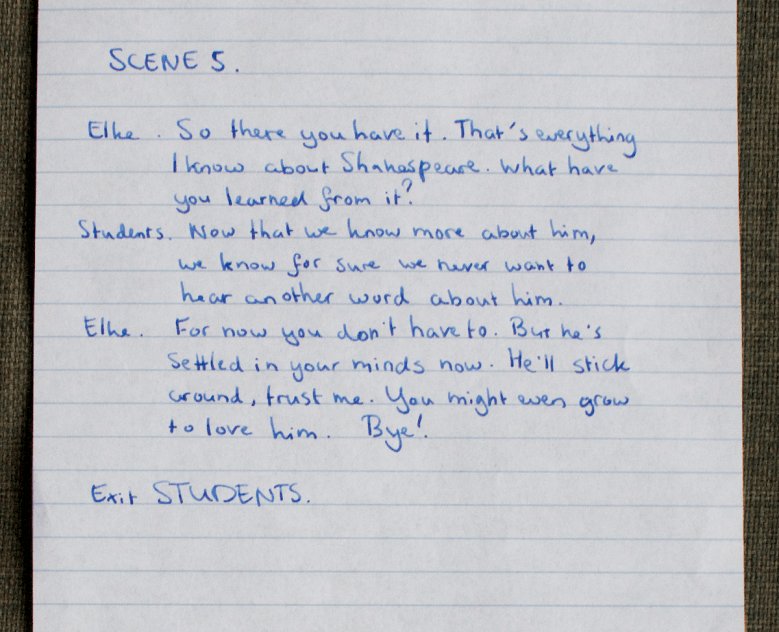 SCENE 5.
Elke. So there you have it. That's everything
I know about Shakespeare. What have
you learned from it?
Students. Now that we know more about him,
we know for sure we never want to
hear another word about him.
Elke. For now you don't have to. But he's
settled in your minds now. He'll stick
around, trust me. You might even grow
to love him. Bye!
Exit STUDENTS.